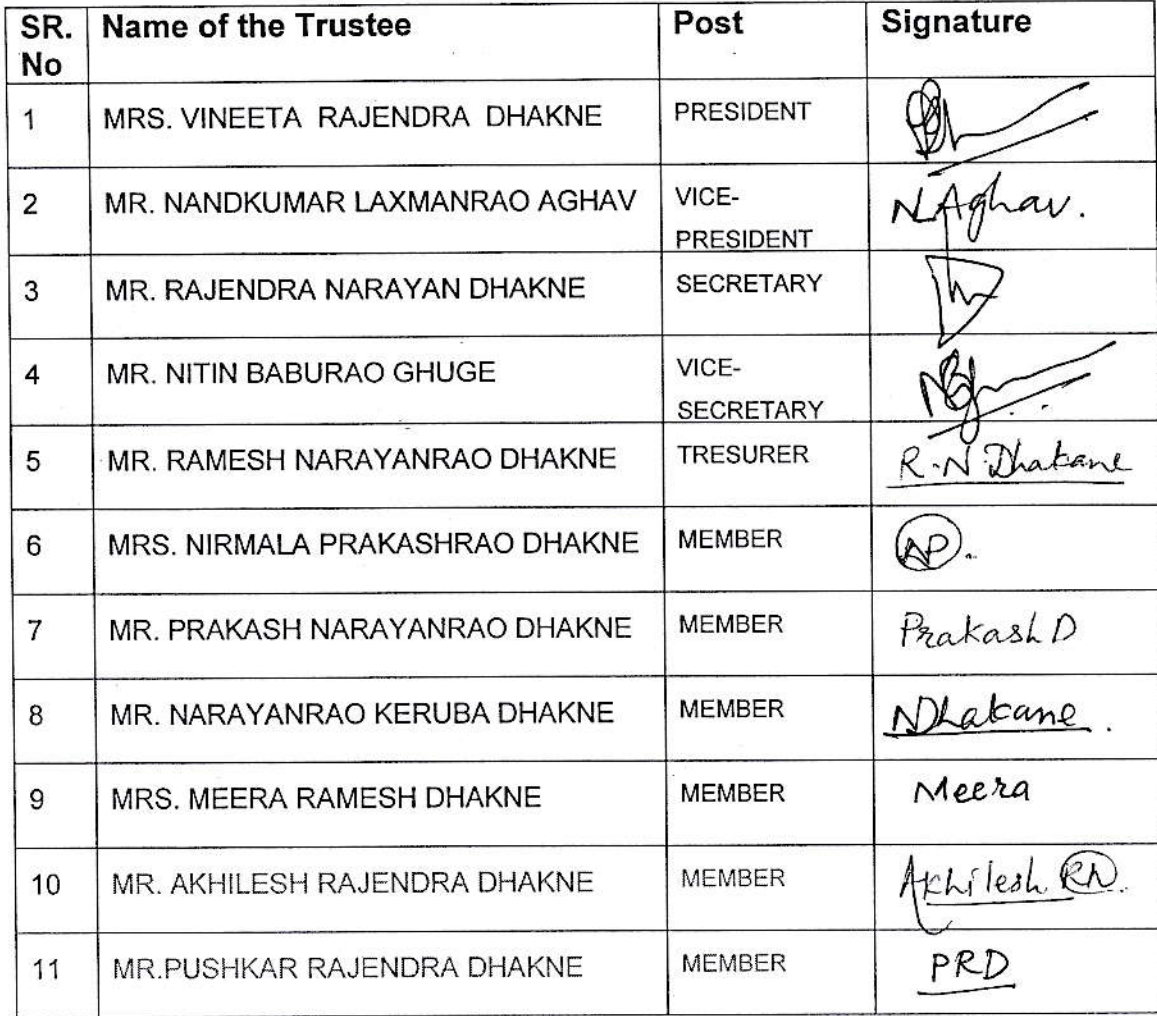 SR. No Name of the Trustee Post Signature
1 MRS. VINEETA RAJENDRA DHAKNE PRESIDENT
2 MR. NANDKUMAR LAXMANRAO AGHAV VICE-PRESIDENT NAghav.
3 MR. RAJENDRA NARAYAN DHAKNE SECRETARY
4 MR. NITIN BABURAO GHUGE VICE-SECRETARY
5 MR. RAMESH NARAYANRAO DHAKNE TRESURER R.N.Dhakane
6 MRS. NIRMALA PRAKASHRAO DHAKNE MEMBER
7 MR. PRAKASH NARAYANRAO DHAKNE MEMBER Prakash D
8 MR. NARAYANRAO KERUBA DHAKNE MEMBER NDhakane.
9 MRS. MEERA RAMESH DHAKNE MEMBER Meera
10 MR. AKHILESH RAJENDRA DHAKNE MEMBER Akhilesh RN.
11 MR.PUSHKAR RAJENDRA DHAKNE MEMBER PRD